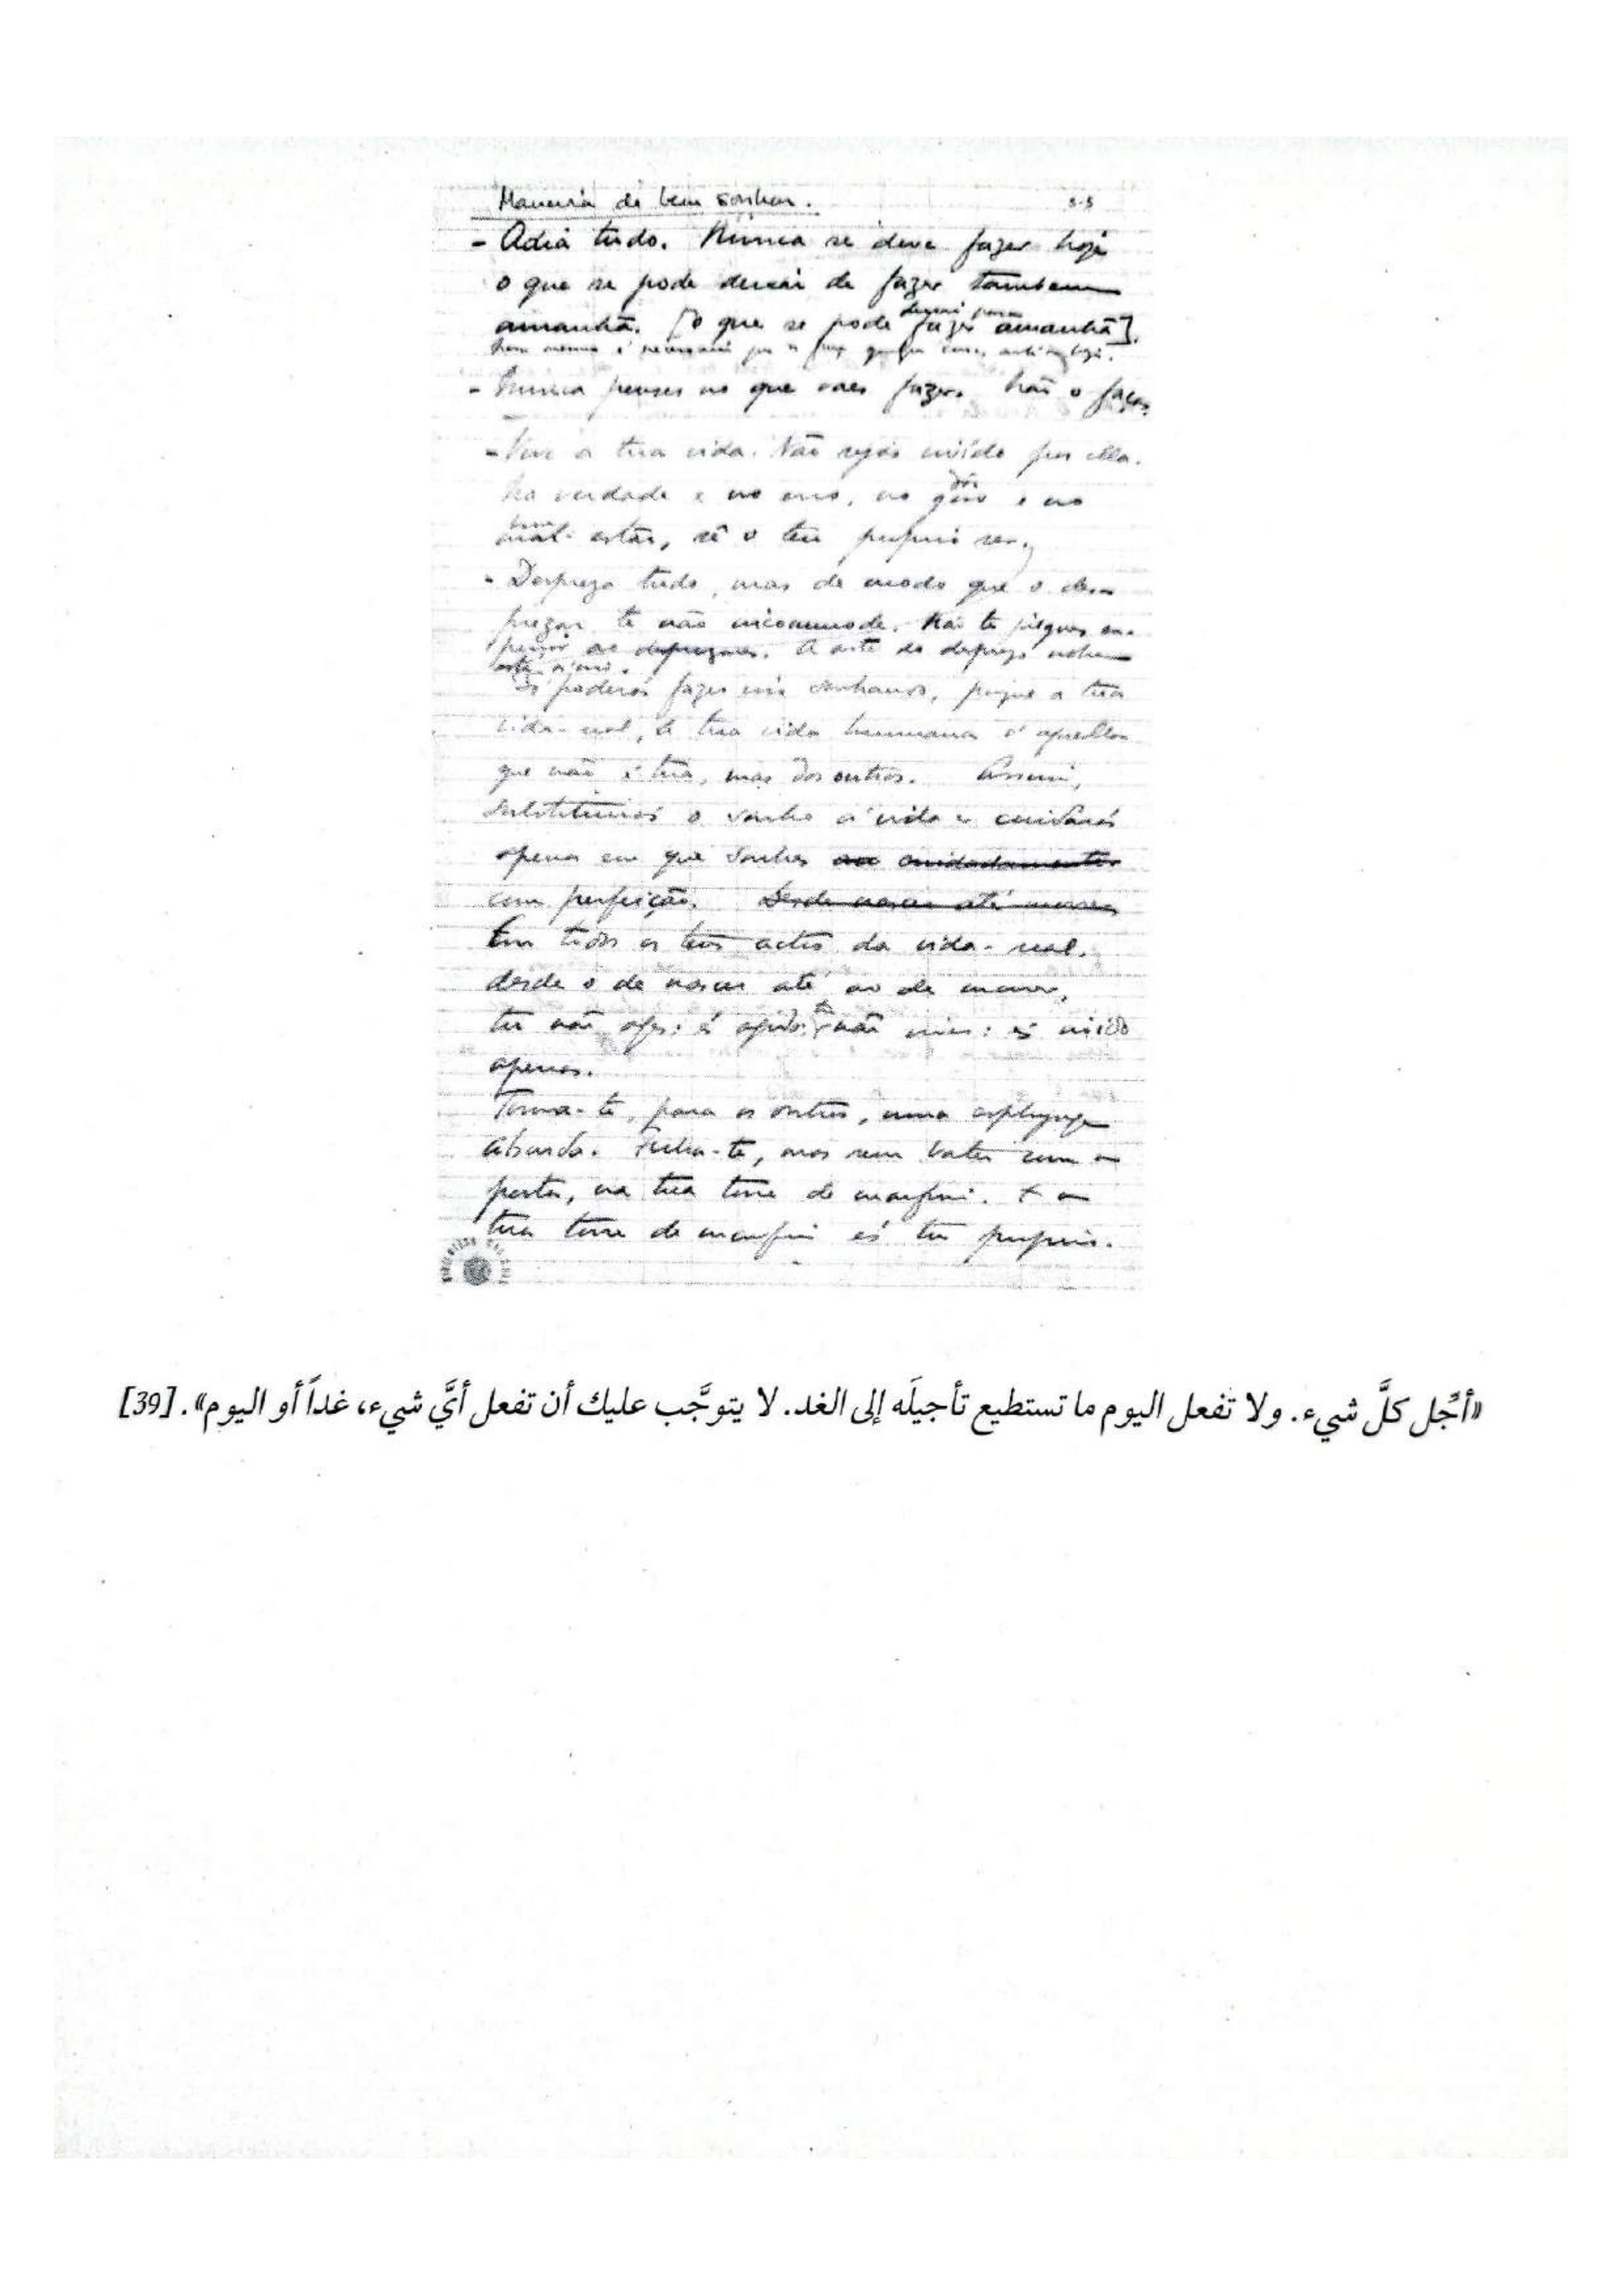 Maneira de bem sonhar. 5-5
- Adia tudo. Nunca se deve fazer hoje
o que se pode deixar de fazer tambem
amanhã. [O que se pode fazer amanhã].
deixar para
Nem mesmo é necessario que se faça qualquer cousa, amanhã ou hoje.
- Nunca penses no que vaes fazer. Não o faças.
- Vive a tua vida. Não sejas vivido por ella.
Na verdade e no erro, no goso e no
dôr
bem
mal-estar, sê o teu proprio ser.
- Despreza tudo, mas de modo que o des-
prezar te não incommode. Não te julgues su-
perior ao desprezares. A arte do desprezo nobre
está n'isso.
Só poderás fazer isso sonhando, porque a tua
vida-real, a tua vida humana é aquella
que não é tua, mas dos outros. Assim,
substituirás o sonho á vida e cuidarás
apenas em que sonhes
com perfeição. Desde nascer até morrer
Em todos os teus actos da vida-real,
desde o de nascer até ao de morrer,
tu não ages: és agido; tu não vives: és vivido
apenas.
Torna-te, para os outros, uma esphynge
absurda. Fecha-te, mas sem bater com a
porta, na tua torre de marfim. E a
tua torre de marfim és tu proprio.
«أجِّل كلَّ شيء. ولا تفعل اليوم ما تستطيع تأجيلَه إلى الغد. لا يتوجَّب عليك أن تفعل أيَّ شيء، غداً أو اليوم». [39]